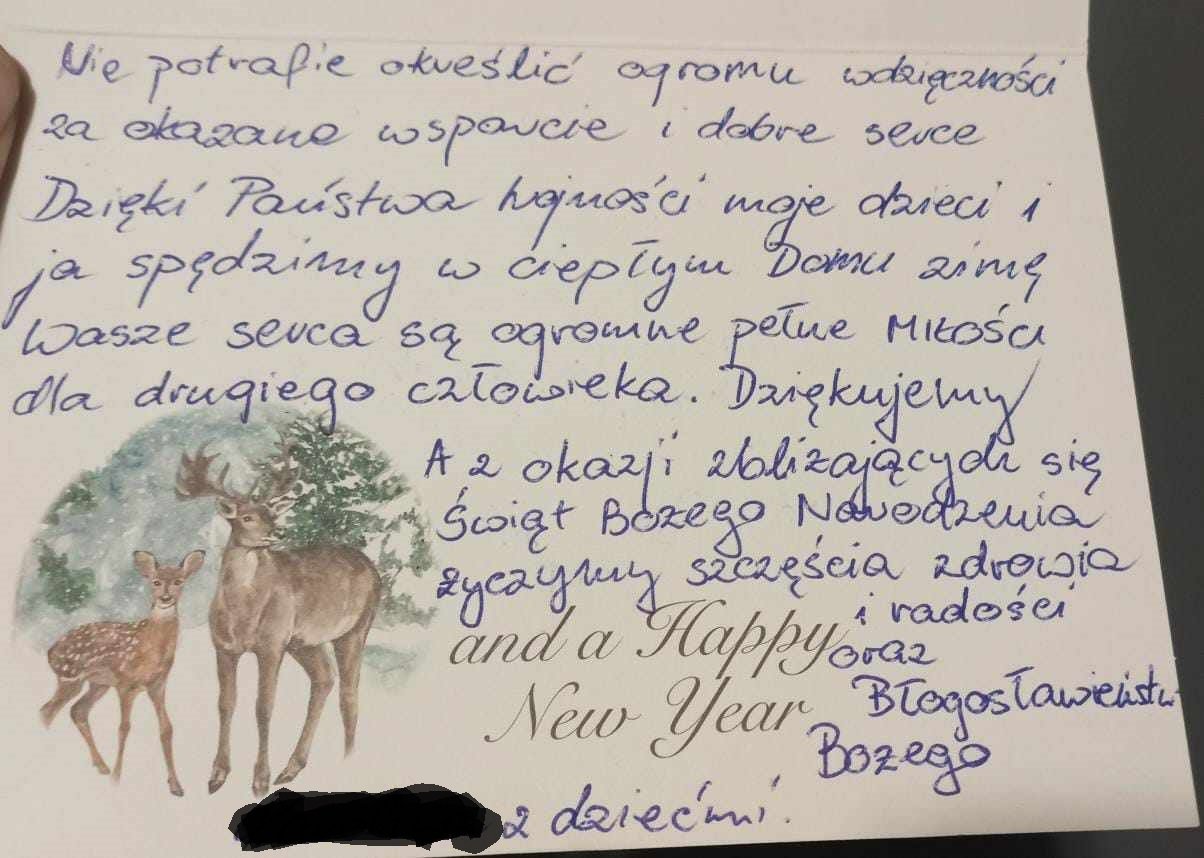 Nie potrafie określić ogromu wdzięczności
za okazane wsparcie i dobre serce
Dzięki Państwa hojności moje dzieci i
ja spędzimy w ciepłym Domu zimę
Wasze serca są ogromne pełne Miłości
dla drugiego człowieka. Dziękujemy
A z okazji zbliżających się
Świąt Bożego Narodzenia
życzymy szczęścia zdrowia
i radości
oraz
Błogosławieństw
Bożego
and a Happy
New Year
z dziećmi.